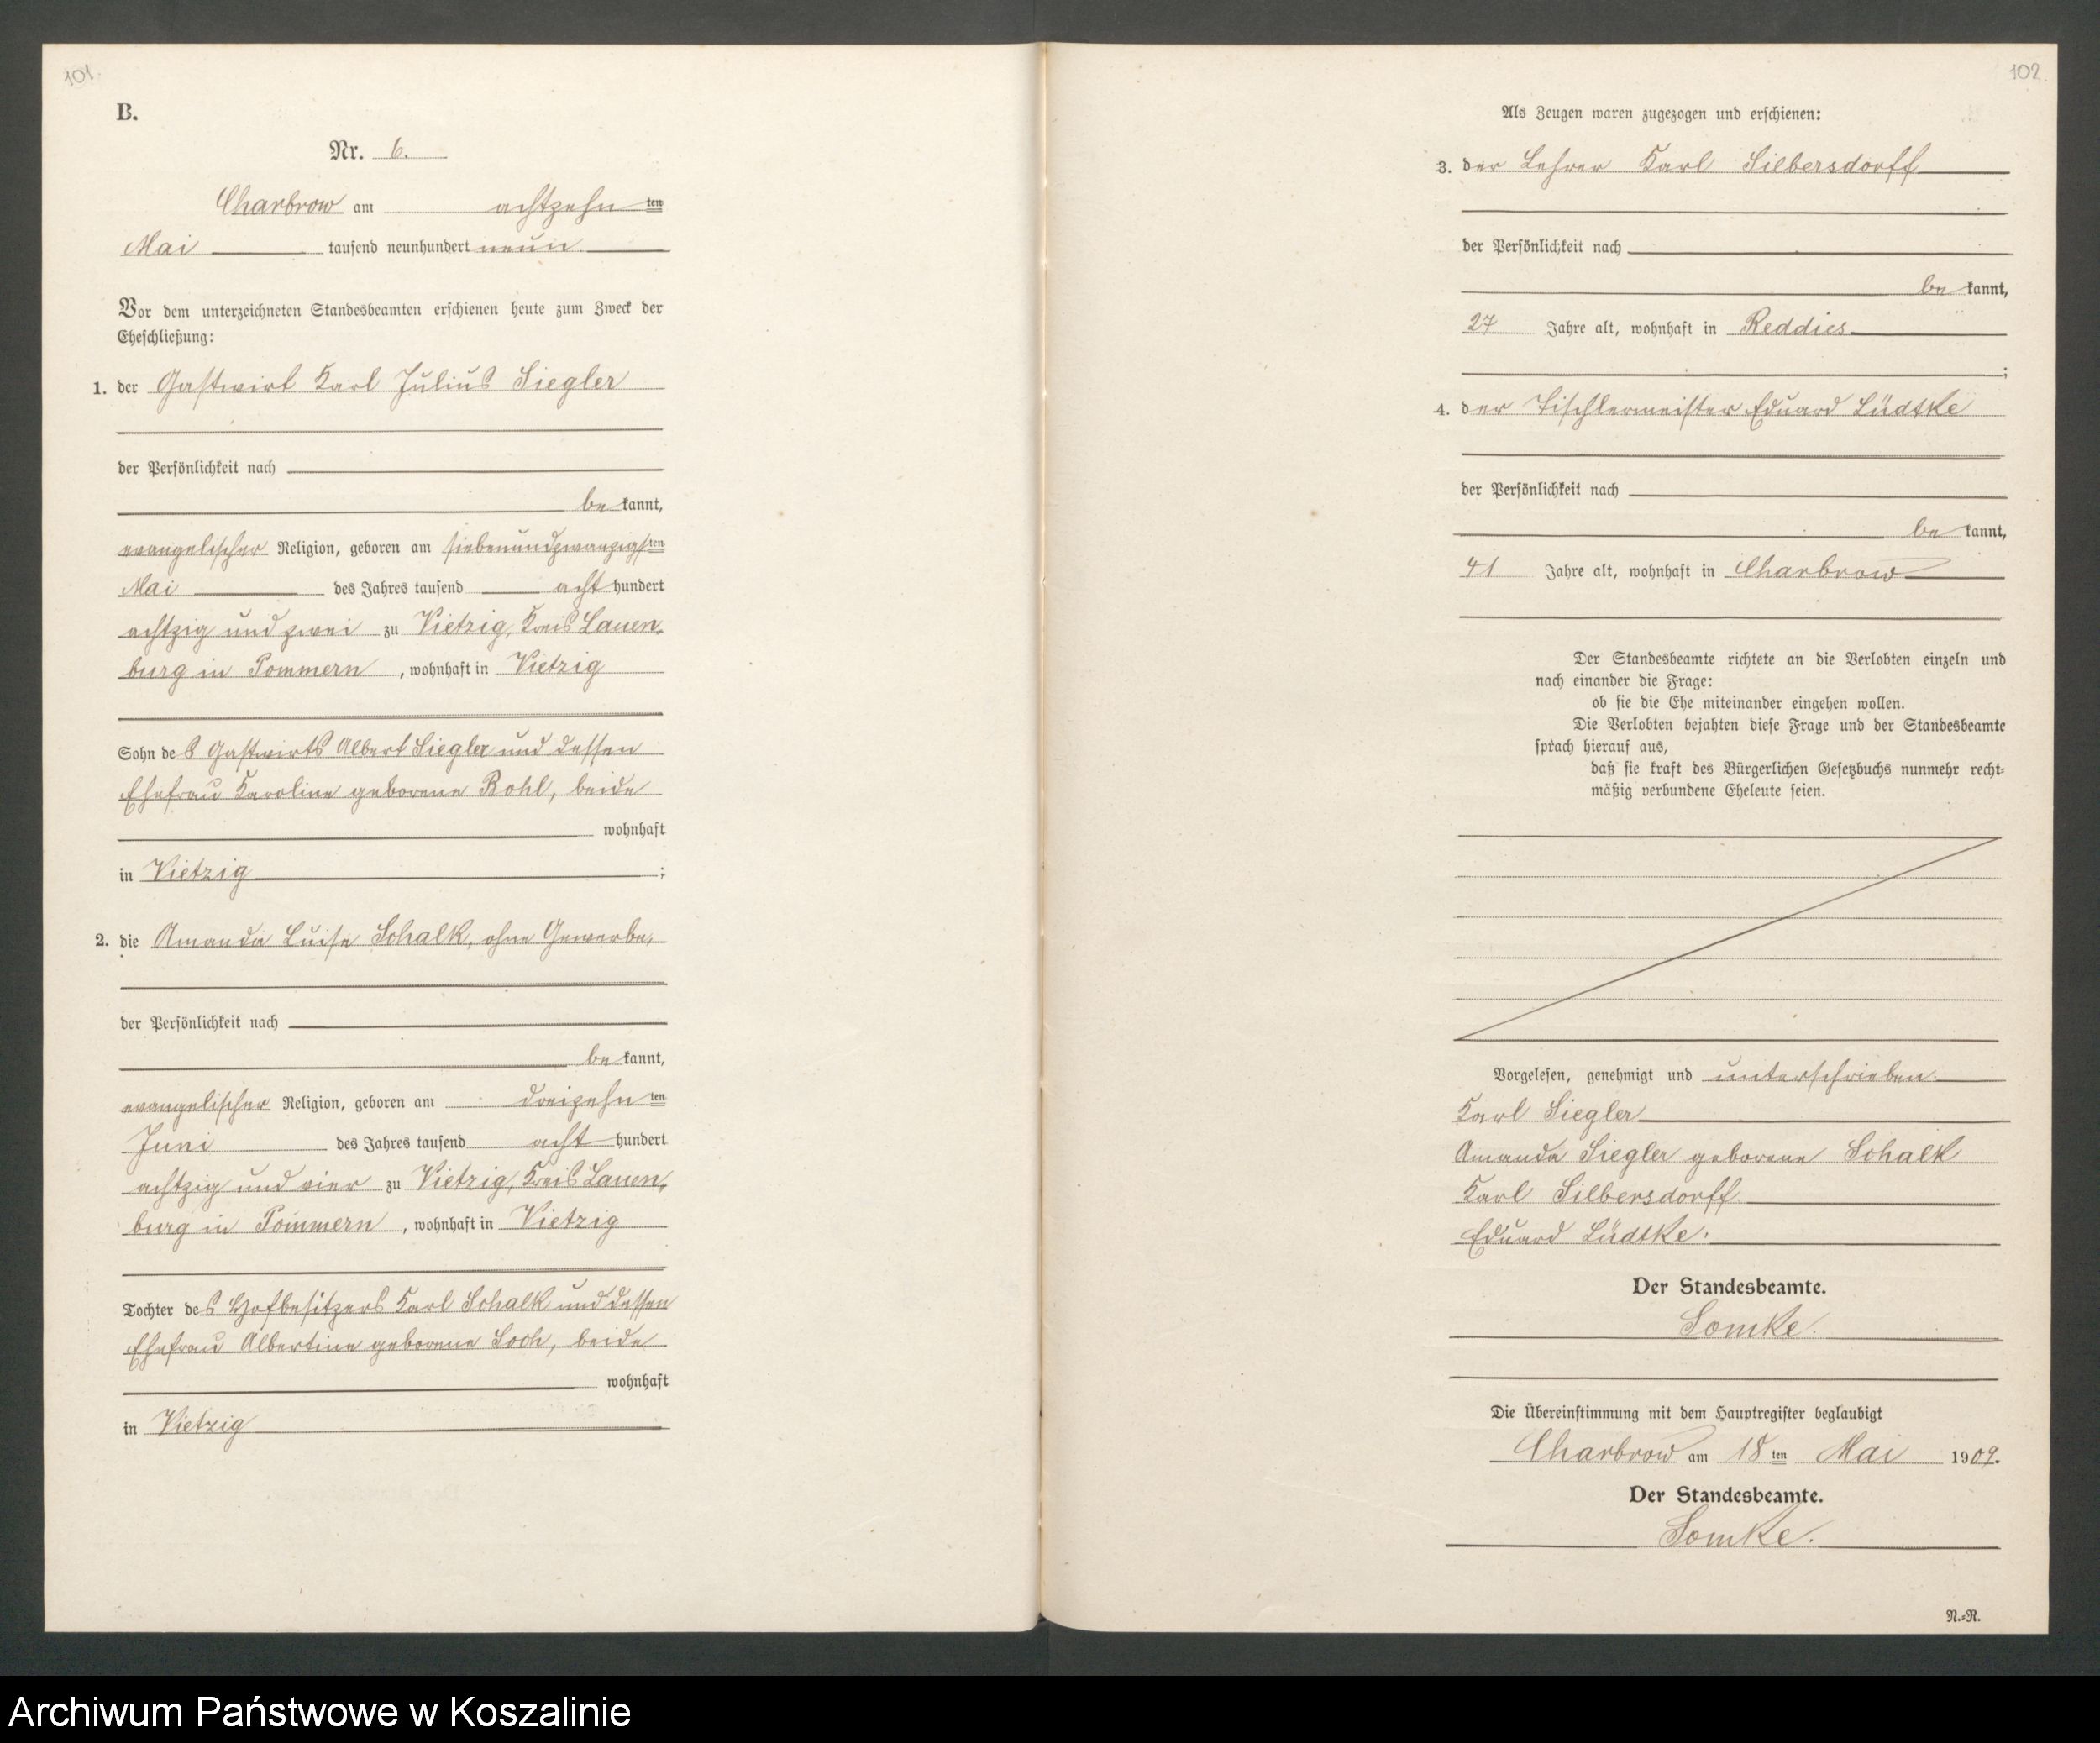 101.
B.
Nr. 6.
Charbrow am achtzehn ten
Mai tausend neunhundert neun
Vor dem unterzeichneten Standesbeamten erschienen heute zum Zweck der
Eheschließung:
1. der Gastwirt Karl Julius Siegler
der Persönlichkeit nach
be kannt,
evangelischer Religion, geboren am siebenundzwanzigsten
Mai des Jahres tausend acht hundert
achtzig und zwei zu Vietzig, Kreis Lauen-
burg in Pommern, wohnhaft in Vietzig
Sohn des Gastwirts Albert Siegler und dessen
Ehefrau Karoline geborene Bohl, beide
wohnhaft
in Vietzig;
2. die Amanda Luise Schalk, ohne Gewerbe,
der Persönlichkeit nach
be kannt,
evangelischer Religion, geboren am dreizehn ten
Juni des Jahres tausend acht hundert
achtzig und vier zu Vietzig, Kreis Lauen-
burg in Pommern, wohnhaft in Vietzig
Tochter des Hofbesitzers Karl Schalk und dessen
Ehefrau Albertine geborene Koch, beide
wohnhaft
in Vietzig
102.
Als Zeugen waren zugezogen und erschienen:
3. der Lehrer Karl Silbersdorff
der Persönlichkeit nach
be kannt,
27 Jahre alt, wohnhaft in Reddies
;
4. der Tischlermeister Eduard Lüdtke
der Persönlichkeit nach
be kannt,
41 Jahre alt, wohnhaft in Charbrow
Der Standesbeamte richtete an die Verlobten einzeln und
nach einander die Frage:
ob sie die Ehe miteinander eingehen wollen.
Die Verlobten bejahten diese Frage und der Standesbeamte
sprach hierauf aus,
daß sie kraft des Bürgerlichen Gesetzbuchs nunmehr recht-
mäßig verbundene Eheleute seien.
Vorgelesen, genehmigt und unterschrieben
Karl Siegler
Amanda Siegler geborene Schalk
Karl Silbersdorff.
Eduard Lüdtke.
Der Standesbeamte.
Lomke.
Die Übereinstimmung mit dem Hauptregister beglaubigt
Charbrow am 18 ten Mai 1909.
Der Standesbeamte.
Lomke.
N.-R.
Archiwum Państwowe w Koszalinie